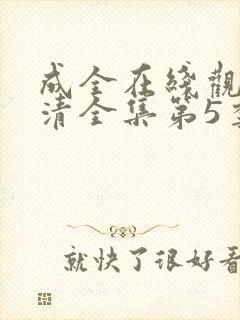 成全在线觀
清全集第5季
就快了很好看